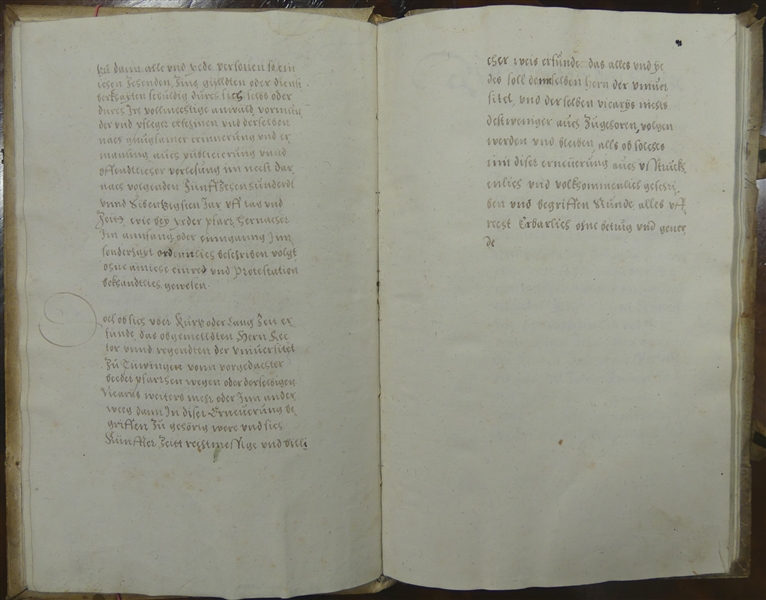 Zu dann alle vnd yede personen so ein
ichen Zehenden Zins gülldten oder dienst
berkeyten schuldig durch sich selbs oder
durch Ire vollmechtige anwäld vormün
der vnd pfleger erschinen vnd derselben
nach gnugsamer erinnerung vnd er
manung auch publicierung vnnd
offendtlicher verlesung im nechst dar
nach volgenden Fünfftzehenhunderdt
vnnd Sibentzigsten Jar vff tag vnd
Zeitt wie bey yeder pfarr hernacher
Im anfang oder einngang Inn
sonderhayt ordennlich beschriben volgt
ohne ainiche einred vnd Protestation
bekhandtlich gewesen
Doch ob sich vber Kurtz oder Lang Zeit er
funde, das obgemelldten Herrn Rec
tor vnnd regendten der Vniuersitet
Zu Tüwingen vonn vorgedachter
beeder pfarrhen wegen oder derselbigen
Vicarys weiters mehr oder Inn ander
weeg dann In diser Erneuerung be
griffen Zu gehörig were vnd sich
Künfftger Zeitt rechtmessige vnd billi
cher weis erfunde das alles vnd ye
des soll demselben hern der vniuer
sitet vnd der selben vicarys nichts
destweniger auch Zugehoren volgen
werden vnd bleiben alls ob solches
inn diser erneuerung auch vstruck
enlich vnd volkommenlich geschri
ben vnd begriffen stunde alles vff
recht Erbarlich ohne betrug vnd gener
de